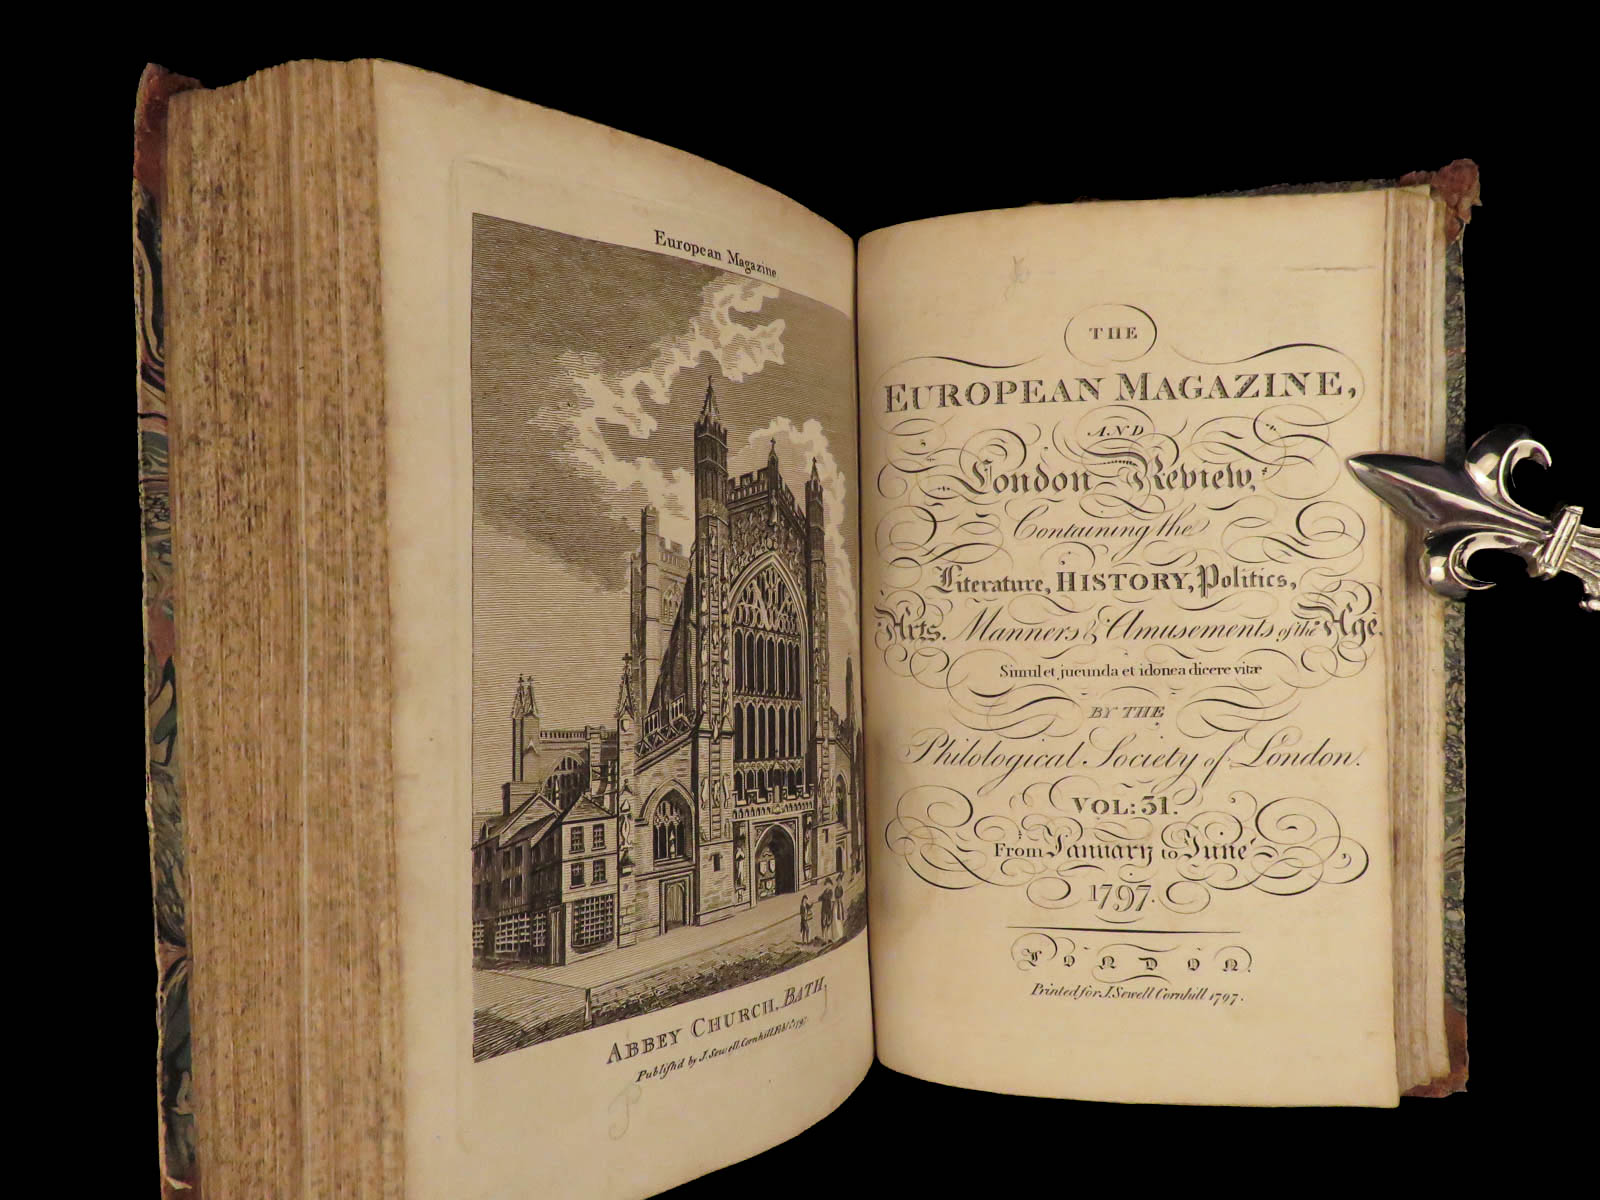 European Magazine
ABBEY CHURCH, BATH,
Publish'd by J. Sewell Cornhill
THE
EUROPEAN MAGAZINE,
AND
London Review,
Containing the
Literature, HISTORY, Politics,
Arts. Manners & Amusements of the Age.
Simul et jucunda et idonea dicere vitæ
BY THE
Philological Society of London.
VOL: 31.
From January to June
1797.
LONDON.
Printed for J. Sewell Cornhill 1797.